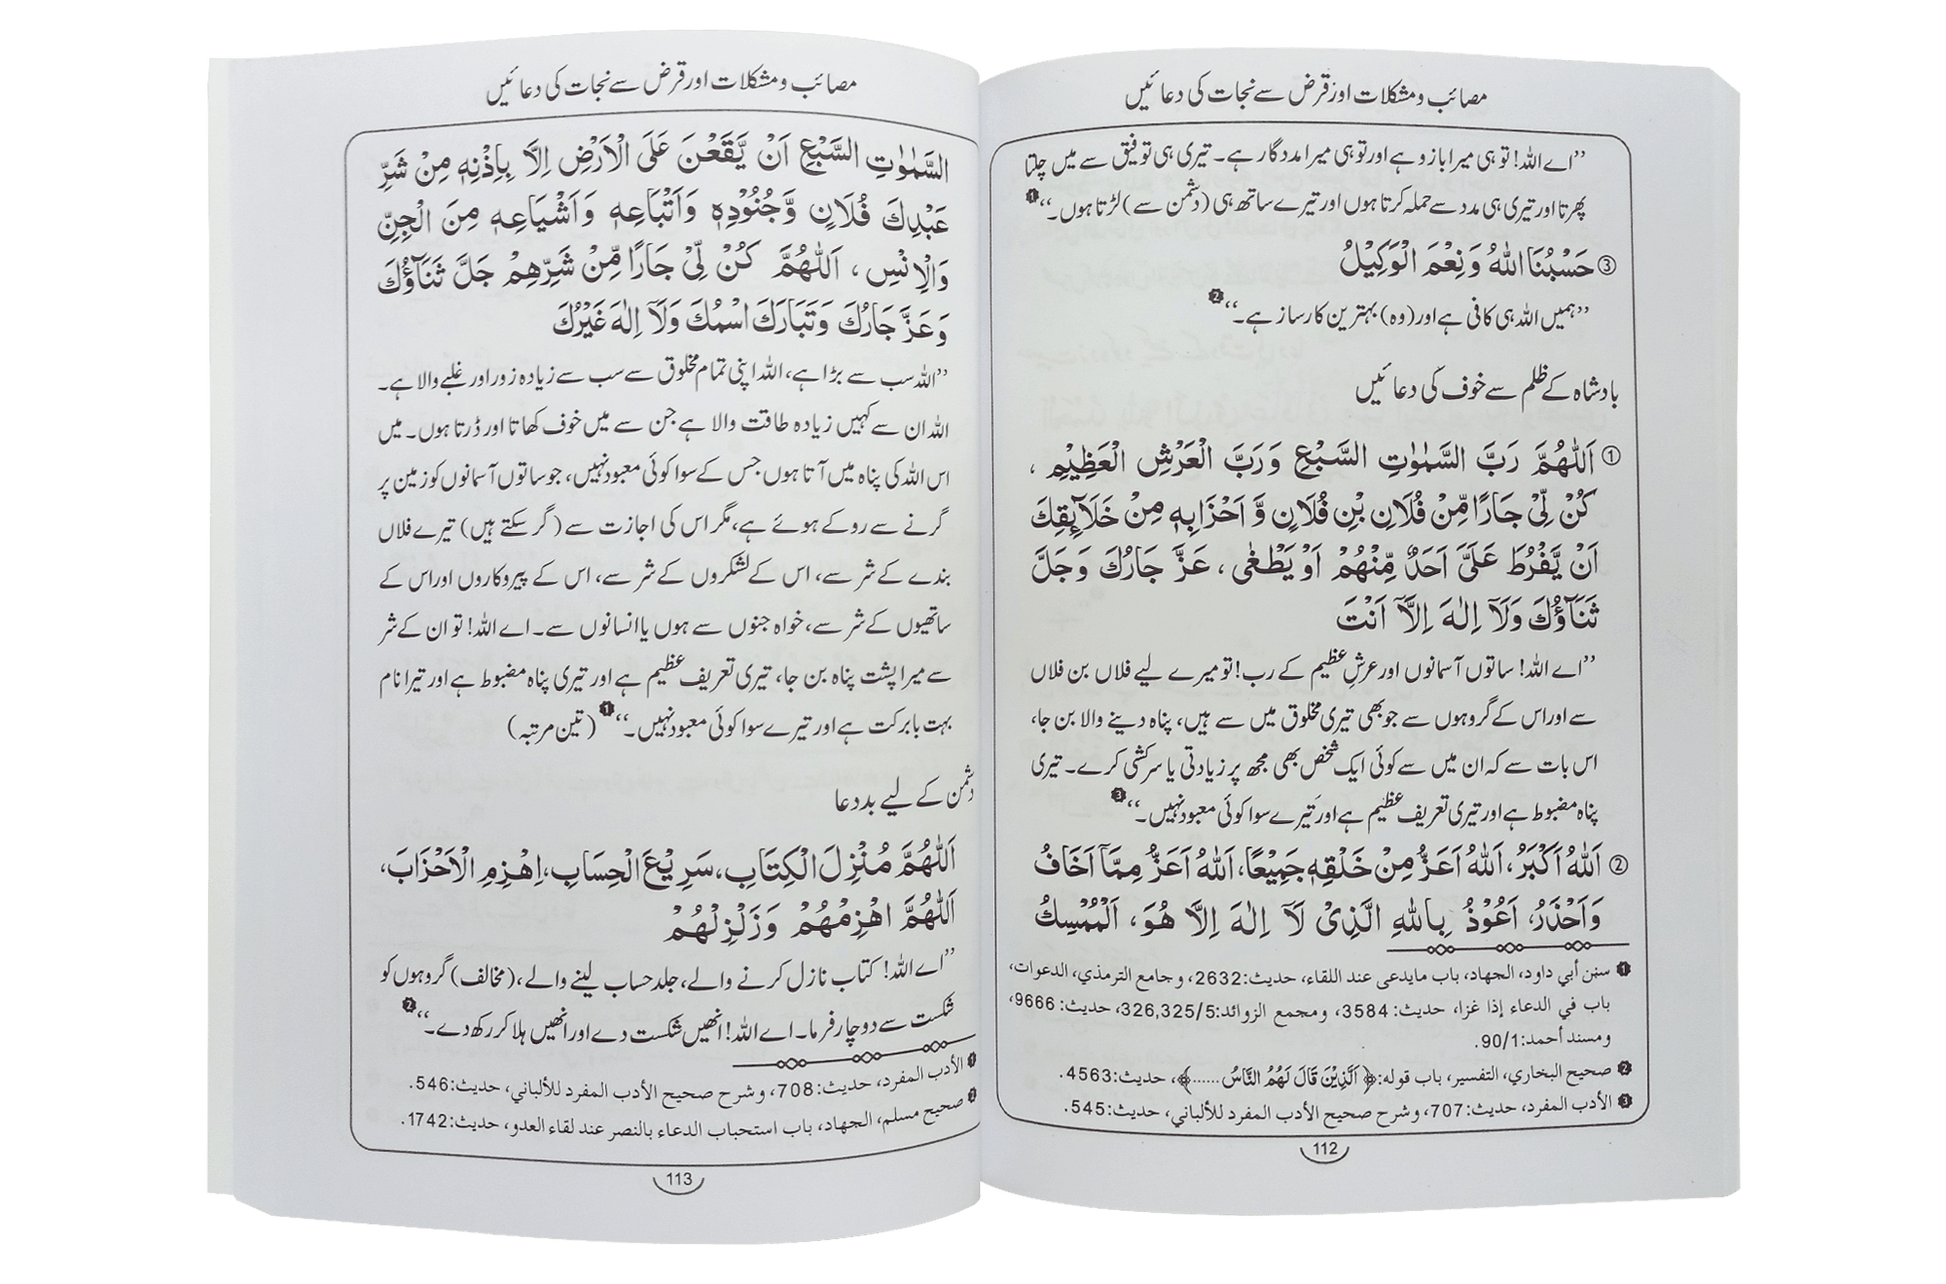 مصائب و مشکلات اور قرض سے نجات کی دعائیں
’’اے اللہ! تو ہی میرا بازو ہے اور تو ہی میرا مددگار ہے۔ تیری ہی توفیق سے میں چلتا
پھرتا اور تیری ہی مدد سے حملہ کرتا ہوں اور تیرے ساتھ ہی (دشمن سے) لڑتا ہوں۔‘‘ ❶
③ حَسْبُنَا اللّٰهُ وَنِعْمَ الْوَكِيْلُ
’’ہمیں اللہ ہی کافی ہے اور (وہ) بہترین کارساز ہے۔‘‘ ❷
بادشاہ کے ظلم سے خوف کی دعائیں
① اَللّٰهُمَّ رَبَّ السَّمٰوٰتِ السَّبْعِ وَرَبَّ الْعَرْشِ الْعَظِيْمِ،
كُنْ لِّيْ جَارًا مِّنْ فُلَانِ بْنِ فُلَانٍ وَّاَحْزَابِهٖ مِنْ خَلَآئِقِكَ
اَنْ يَّفْرُطَ عَلَيَّ اَحَدٌ مِّنْهُمْ اَوْ يَطْغٰى، عَزَّ جَارُكَ وَجَلَّ
ثَنَآؤُكَ وَلَآ اِلٰهَ اِلَّآ اَنْتَ
’’اے اللہ! ساتوں آسمانوں اور عرشِ عظیم کے رب! تو میرے لیے فلاں بن فلاں
سے اور اس کے گروہوں سے جو بھی تیری مخلوق میں سے ہیں، پناہ دینے والا بن جا،
اس بات سے کہ ان میں سے کوئی ایک شخص بھی مجھ پر زیادتی یا سرکشی کرے۔ تیری
پناہ مضبوط ہے اور تیری تعریف عظیم ہے اور تیرے سوا کوئی معبود نہیں۔‘‘ ❸
② اَللّٰهُ اَكْبَرُ، اَللّٰهُ اَعَزُّ مِنْ خَلْقِهٖ جَمِيْعًا، اَللّٰهُ اَعَزُّ مِمَّآ اَخَافُ
وَاَحْذَرُ، اَعُوْذُ بِاللّٰهِ الَّذِيْ لَآ اِلٰهَ اِلَّا هُوَ، اَلْمُمْسِكُ
❶ سنن أبي داود، الجهاد، باب مايدعى عند اللقاء، حديث:2632، وجامع الترمذي، الدعوات،
باب في الدعاء إذا غزا، حديث: 3584، ومجمع الزوائد:5/326,325، حديث: 9666،
ومسند أحمد:1/90.
❷ صحيح البخاري، التفسير، باب قوله:﴿اَلَّذِيْنَ قَالَ لَهُمُ النَّاسُ......﴾، حديث:4563.
❸ الأدب المفرد، حديث:707، وشرح صحيح الأدب المفرد للألباني، حديث:545.
112
مصائب و مشکلات اور قرض سے نجات کی دعائیں
السَّمٰوٰتِ السَّبْعِ اَنْ يَّقَعْنَ عَلَى الْاَرْضِ اِلَّا بِاِذْنِهٖ مِنْ شَرِّ
عَبْدِكَ فُلَانٍ وَّجُنُوْدِهٖ وَاَتْبَاعِهٖ وَاَشْيَاعِهٖ مِنَ الْجِنِّ
وَالْاِنْسِ، اَللّٰهُمَّ كُنْ لِّيْ جَارًا مِّنْ شَرِّهِمْ جَلَّ ثَنَآؤُكَ
وَعَزَّ جَارُكَ وَتَبَارَكَ اسْمُكَ وَلَآ اِلٰهَ غَيْرُكَ
’’اللہ سب سے بڑا ہے، اللہ اپنی تمام مخلوق سے سب سے زیادہ زور اور غلبے والا ہے۔
اللہ ان سے کہیں زیادہ طاقت والا ہے جن سے میں خوف کھاتا اور ڈرتا ہوں۔ میں
اس اللہ کی پناہ میں آتا ہوں جس کے سوا کوئی معبود نہیں، جو ساتوں آسمانوں کو زمین پر
گرنے سے روکے ہوئے ہے، مگر اس کی اجازت سے (گر سکتے ہیں) تیرے فلاں
بندے کے شر سے، اس کے لشکروں کے شر سے، اس کے پیروکاروں اور اس کے
ساتھیوں کے شر سے، خواہ جنوں سے ہوں یا انسانوں سے۔ اے اللہ! تو ان کے شر
سے میرا پشت پناہ بن جا، تیری تعریف عظیم ہے اور تیری پناہ مضبوط ہے اور تیرا نام
بہت بابرکت ہے اور تیرے سوا کوئی معبود نہیں۔‘‘ ❶ (تین مرتبہ)
دشمن کے لیے بددعا
اَللّٰهُمَّ مُنْزِلَ الْكِتَابِ، سَرِيْعَ الْحِسَابِ، اِهْزِمِ الْاَحْزَابَ،
اَللّٰهُمَّ اهْزِمْهُمْ وَزَلْزِلْهُمْ
’’اے اللہ! کتاب نازل کرنے والے، جلد حساب لینے والے، (مخالف) گروہوں کو
شکست سے دوچار فرما۔ اے اللہ! انھیں شکست دے اور انھیں ہلا کر رکھ دے۔‘‘ ❷
❶ الأدب المفرد، حديث: 708، وشرح صحيح الأدب المفرد للألباني، حديث:546.
❷ صحيح مسلم، الجهاد، باب استحباب الدعاء بالنصر عند لقاء العدو، حديث:1742.
113